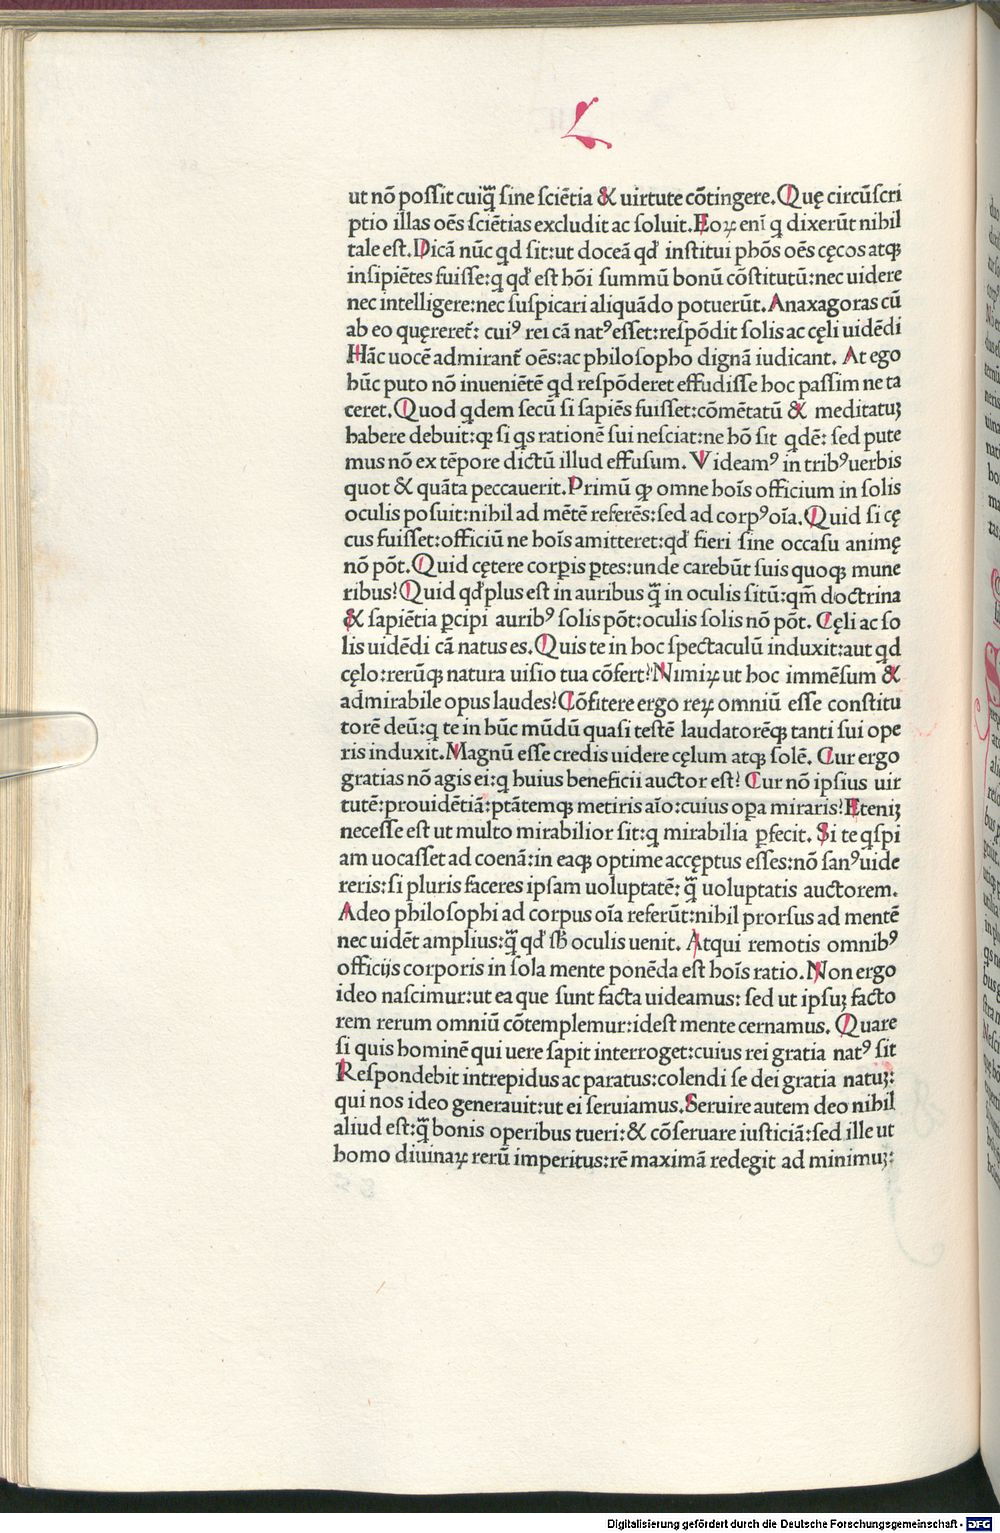 L
ut nō possit cuiq̄ȝ sine sciētia & uirtute cōtingere. Quę circūscri
ptio illas oēs sciētias excludit ac soluit. Eoꝝ enī q dixerūt nihil
tale est. Dicā nūc qd sit: ut doceā qđ institui phōs oēs cęcos atqꝫ
insipiētes fuisse: q qđ est hōi summū bonū cōstitutū: nec uidere
nec intelligere: nec suspicari aliquādo potuerūt. Anaxagoras cū
ab eo quęrereť: cuiꝰ rei cā natꝰ esset: respōdit solis ac cęli uidēdi
Hāc uocē admiranť oēs: ac philosopho dignā iudicant. At ego
hūc puto nō inueniētē qd respōderet effudisse hoc passim ne ta
ceret. Quod qdem secū si sapiēs fuisset: cōmētatū & meditatuꝫ
habere debuit: qꝫ si qs rationē sui nesciat: ne hō sit qdē: sed pute
mus nō ex tēpore dictū illud effusum. Videamꝰ in tribꝰ uerbis
quot & quāta peccauerit. Primū qꝫ omne hoīs officium in solis
oculis posuit: nihil ad mētē referēs: sed ad corpꝰ oīa. Quid si cę
cus fuisset: officiū ne hoīs amitteret: qđ fieri sine occasu animę
nō pōt. Quid cętere corꝑis ꝑtes: unde carebūt suis quoqꝫ mune
ribus? Quid qđ plus est in auribus q̄ȝ in oculis sitū: qm̄ doctrina
& sapiētia ꝑcipi auribꝰ solis pōt: oculis solis nō pōt. Cęli ac so
lis uidēdi cā natus es. Quis te in hoc spectaculū induxit: aut qd
cęlo: rerūqꝫ natura uisio tua cōfert? Nimiꝝ ut hoc immēsum &
admirabile opus laudes? Cōfitere ergo reꝝ omniū esse constitu
torē deū: q te in hūc mūdū quasi testē laudatorēqꝫ tanti sui ope
ris induxit. Magnū esse credis uidere cęlum atqꝫ solē. Cur ergo
gratias nō agis ei: q huius beneficii auctor est? Cur nō ipsius uir
tutē: prouidētiā: ptātemqꝫ metiris aīo: cuius oꝑa miraris? Eteniꝫ
necesse est ut multo mirabilior sit: q mirabilia ꝑfecit. Si te qspi
am uocasset ad coenā: in eaqꝫ optime accęptus esses: nō sanꝰ uide
reris: si pluris faceres ipsam uoluptatē: q̄ȝ uoluptatis auctorem.
Adeo philosophi ad corpus oīa referūt: nihil prorsus ad mentē
nec uidēt amplius: q̄ȝ qđ sƀ oculis uenit. Atqui remotis omnibꝰ
officijs corporis in sola mente ponēda est hoīs ratio. Non ergo
ideo nascimur: ut ea que sunt facta uideamus: sed ut ipsuꝫ facto
rem rerum omniū cōtemplemur: idest mente cernamus. Quare
si quis hominē qui uere sapit interroget: cuius rei gratia natꝰ sit
Respondebit intrepidus ac paratus: colendi se dei gratia natuꝫ:
qui nos ideo generauit: ut ei seruiamus. Seruire autem deo nihil
aliud est: q̄ȝ bonis operibus tueri: & cōseruare iusticiā: sed ille ut
homo diuinaꝝ rerū imperitus: rē maximā redegit ad minimuꝫ:
Digitalisierung gefördert durch die Deutsche Forschungsgemeinschaft - DFG